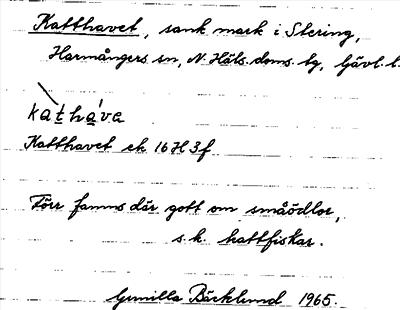 Katthavet, sank mark i Stering,
Harmångers sn, N. Häls. doms. lg, Gävl. l.
kathava
Katthavet ek 16H3f
Förr fanns där gott om småödlor,
s.k. kattfiskar.
Gunilla Bäcklund 1965.